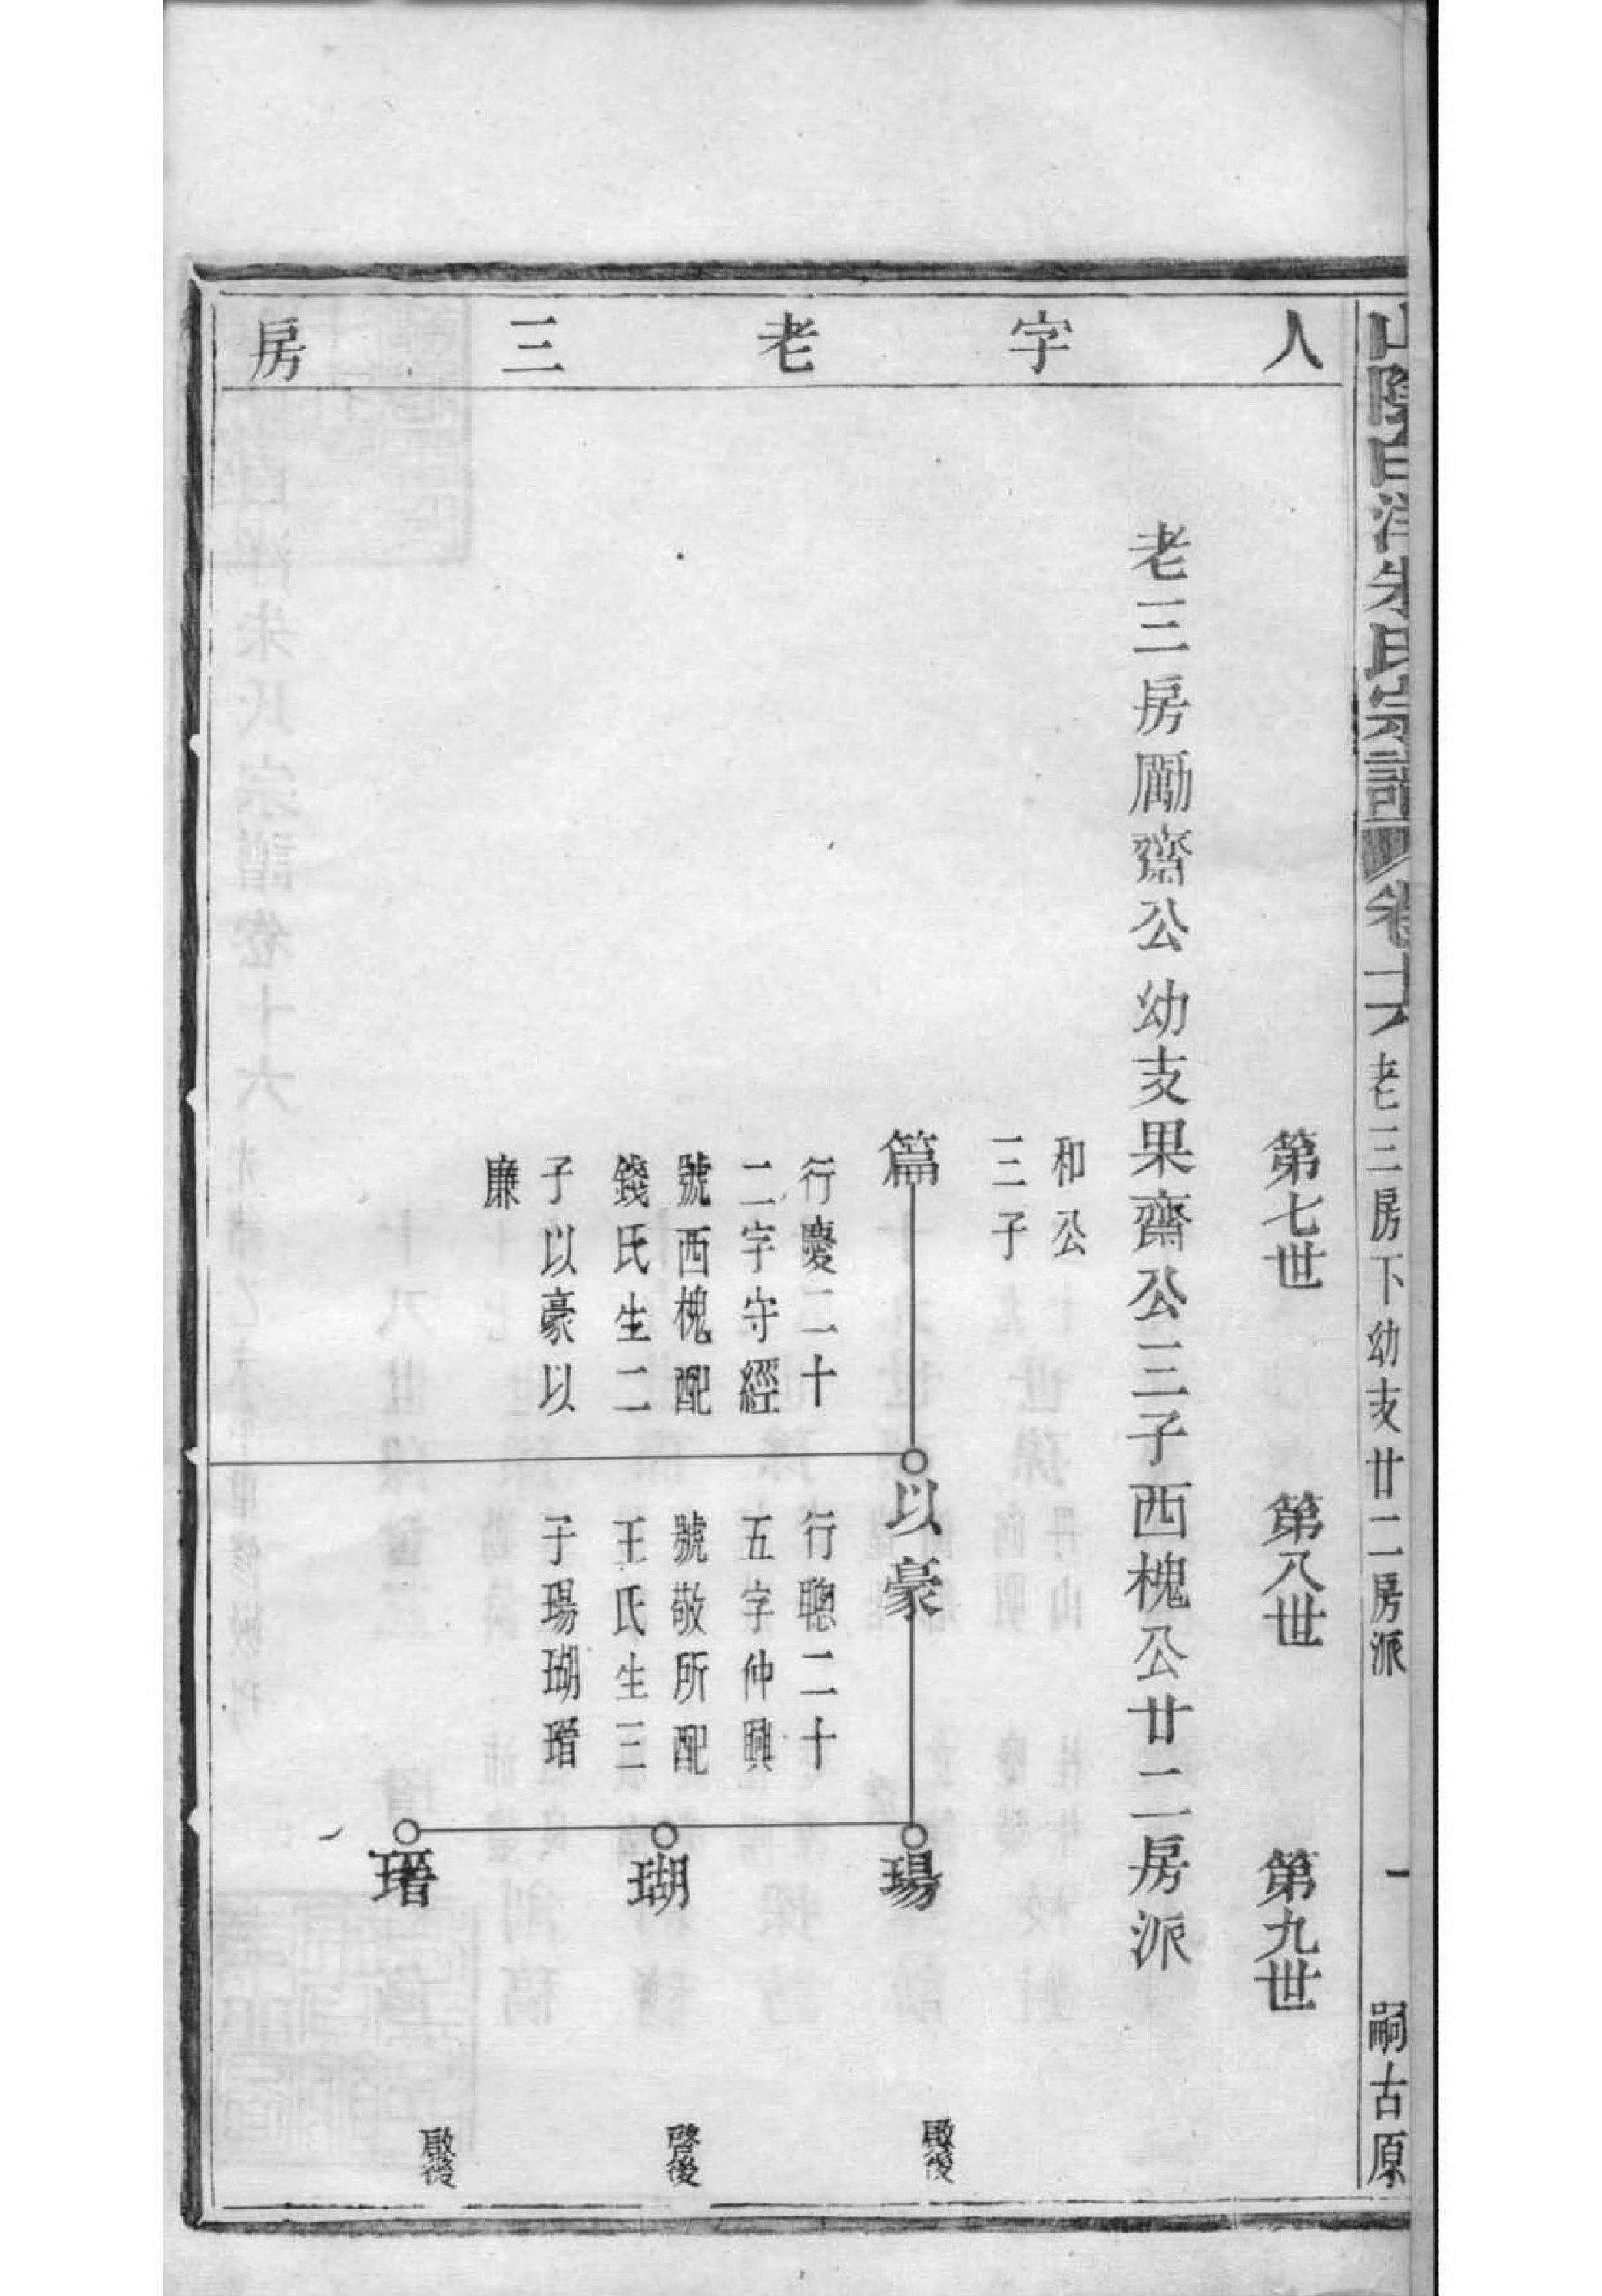 山陰白洋朱氏宗譜 卷十六 老三房下幼支廿二房派 一 嗣古原
人字老三房
第七世 第八世 第九世
老三房勵齋公幼支果齋公三子西槐公廿二房派
和公
三子
篇
行慶二十
二字守經
號西槐配
錢氏生二
子以豪以
廉
以豪
行聰二十
五字仲興
號敬所配
王氏生三
子瑒瑚瑨
瑒
啟後
瑚
啓後
瑨
啟後